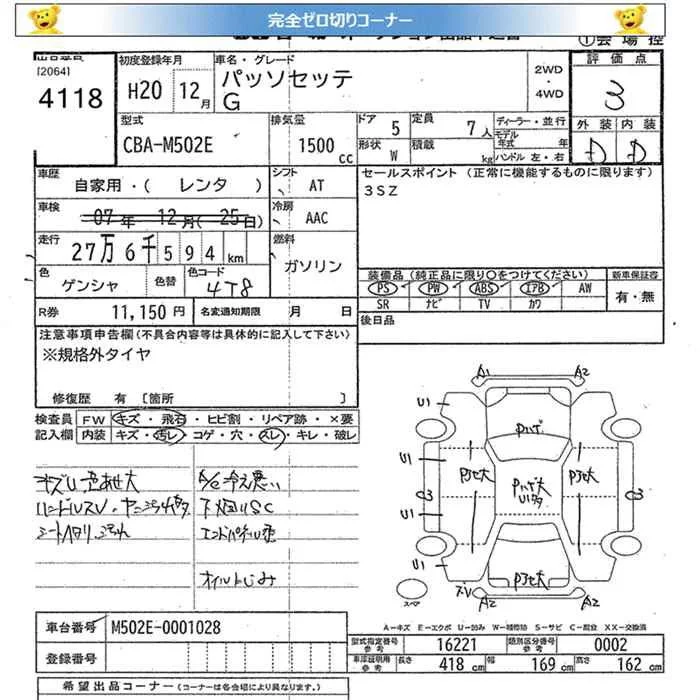 完全ゼロ切りコーナー
[2064]
4118
初度登録年月
H20 12月
車名・グレード
パッソセッテ
G
2WD
・
4WD
評価点
3
外装 内装
D D
型式
CBA-M502E
排気量
1500 cc
ドア 5
形状 W
定員 7人
積載 kg
ディーラー・並行
モデル年式 年
ハンドル 左・右
車歴
自家用・( レンタ )
シフト AT
セールスポイント (正常に機能するものに限ります)
3SZ
車検
07年 12月(25日)
冷房 AAC
走行
27万6千594km
燃料
ガソリン
色
ゲンシャ
色替
色コード
4T8
装備品(純正品に限り○をつけてください)
PS PW ABS エアB AW
SR ナビ TV カワ
新車保証書
有・無
R券 11,150円
名変通知期限 月 日
後日品
注意事項申告欄(不具合内容等は具体的に記入して下さい)
※規格外タイヤ
修復歴 有 [箇所 ]
検査員 FW キズ・飛石・ヒビ割・リペア跡・×要
記入欄 内装 キズ・汚レ・コゲ・穴・スレ・キレ・破レ
キズU色あせ大
ハンドルスレ
A/C冷え悪い
下廻りSC
オイルにじみ
A1 A2
U1
U1
U1
U1
A2 A2
スペア
A-キズ E-エクボ U-凹み W-補修跡 S-サビ C-腐食 XX-交換済
車台番号 M502E-0001028
登録番号
型式指定番号 参考 16221 類別区分番号 参考 0002
車庫証明用 参考 長さ 418cm 幅 169cm 高さ 162cm
希望出品コーナー(コーナーは各会場により異なります。)